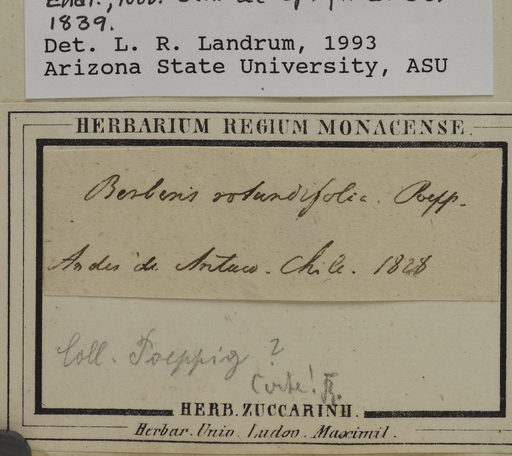 1839.
Det. L. R. Landrum, 1993
Arizona State University, ASU
HERBARIUM REGIUM MONACENSE.
Berberis rotundifolia. Poepp.
Andes de Antuco. Chile. 1828
Coll. Poeppig ?
Certe!
HERB. ZUCCARINII.
Herbar. Univ. Ludov. Maximil.